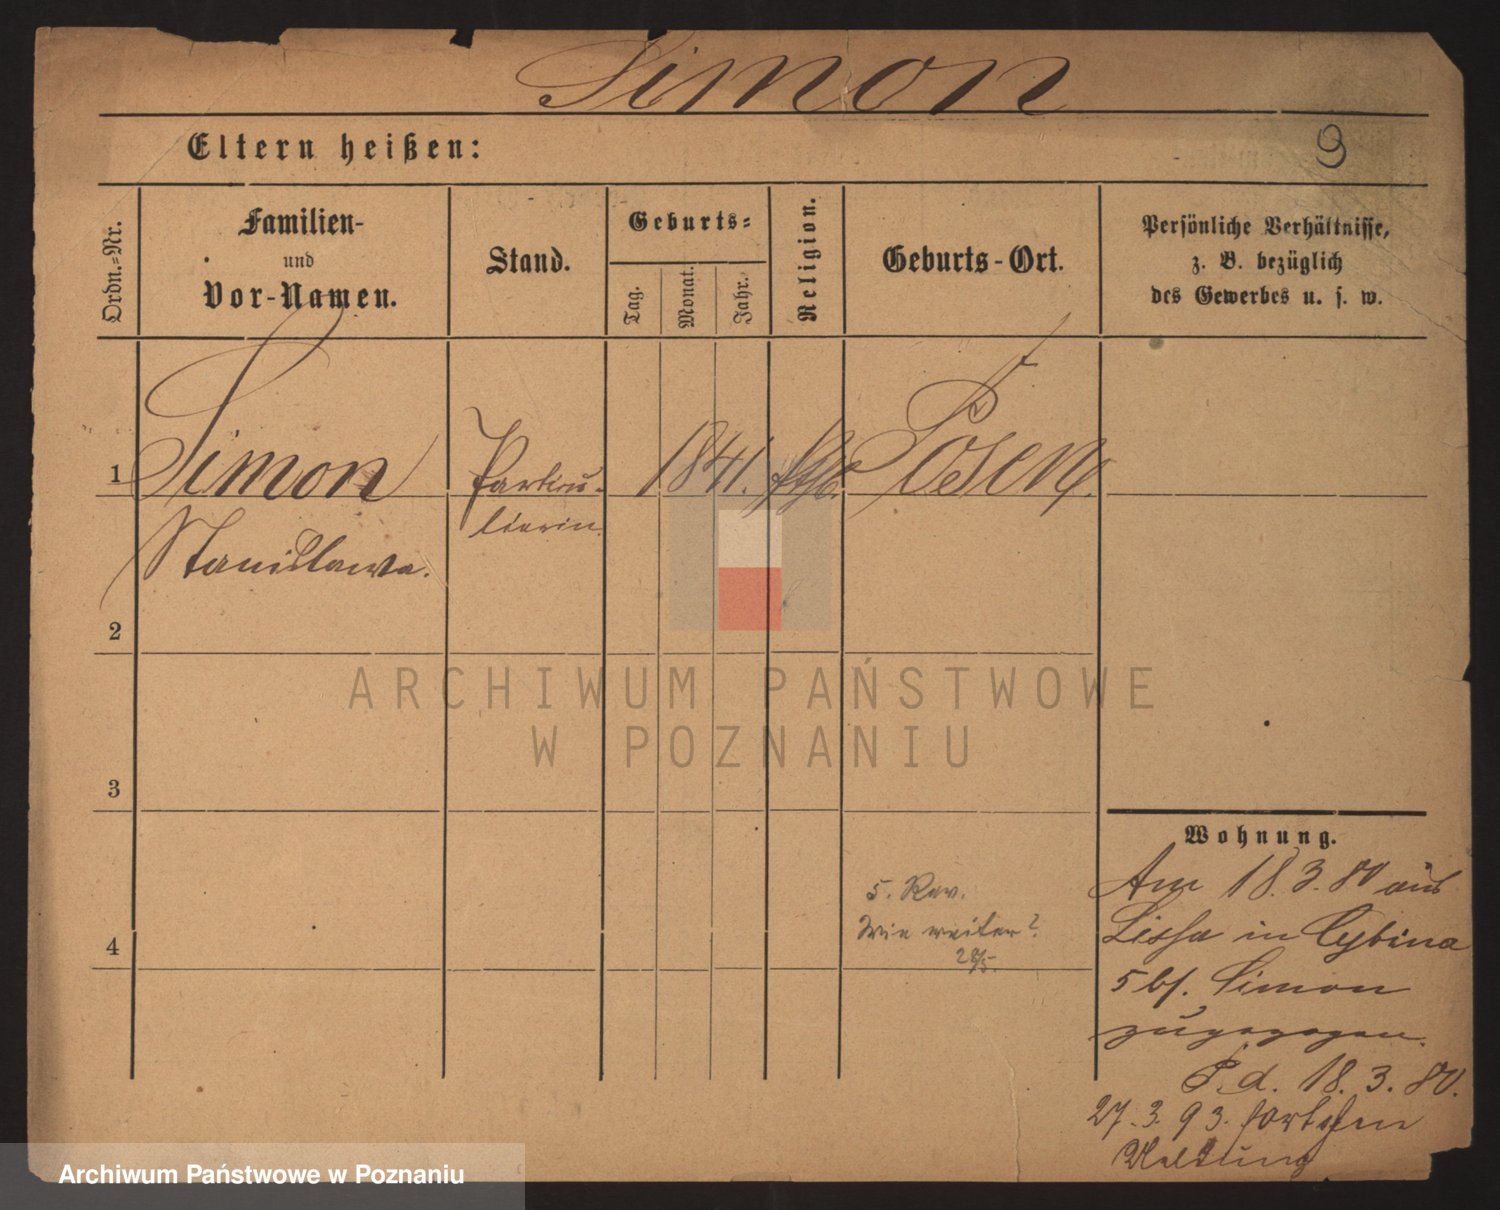 Simon
9
Eltern heißen:
Ordn.-Nr.
Familien-
und
Vor-Namen.
Stand.
Geburts-
Tag.
Monat.
Jahr.
Religion.
Geburts-Ort.
Persönliche Verhältnisse,
z. B. bezüglich
des Gewerbes u. s. w.
1
Simon
Stanislawa.
Particu-
lierin
1841.
kth.
Posen
2
3
4
5. Rev.
Wie weiter?
28/5.
Wohnung.
Am 18.3.80 aus
Lissa in Cybina
5 bf. Simon
zugezogen.
P. d. 18.3.80.
27.3.93. fort ohne
Meldung
ARCHIWUM PAŃSTWOWE
W POZNANIU
Archiwum Państwowe w Poznaniu